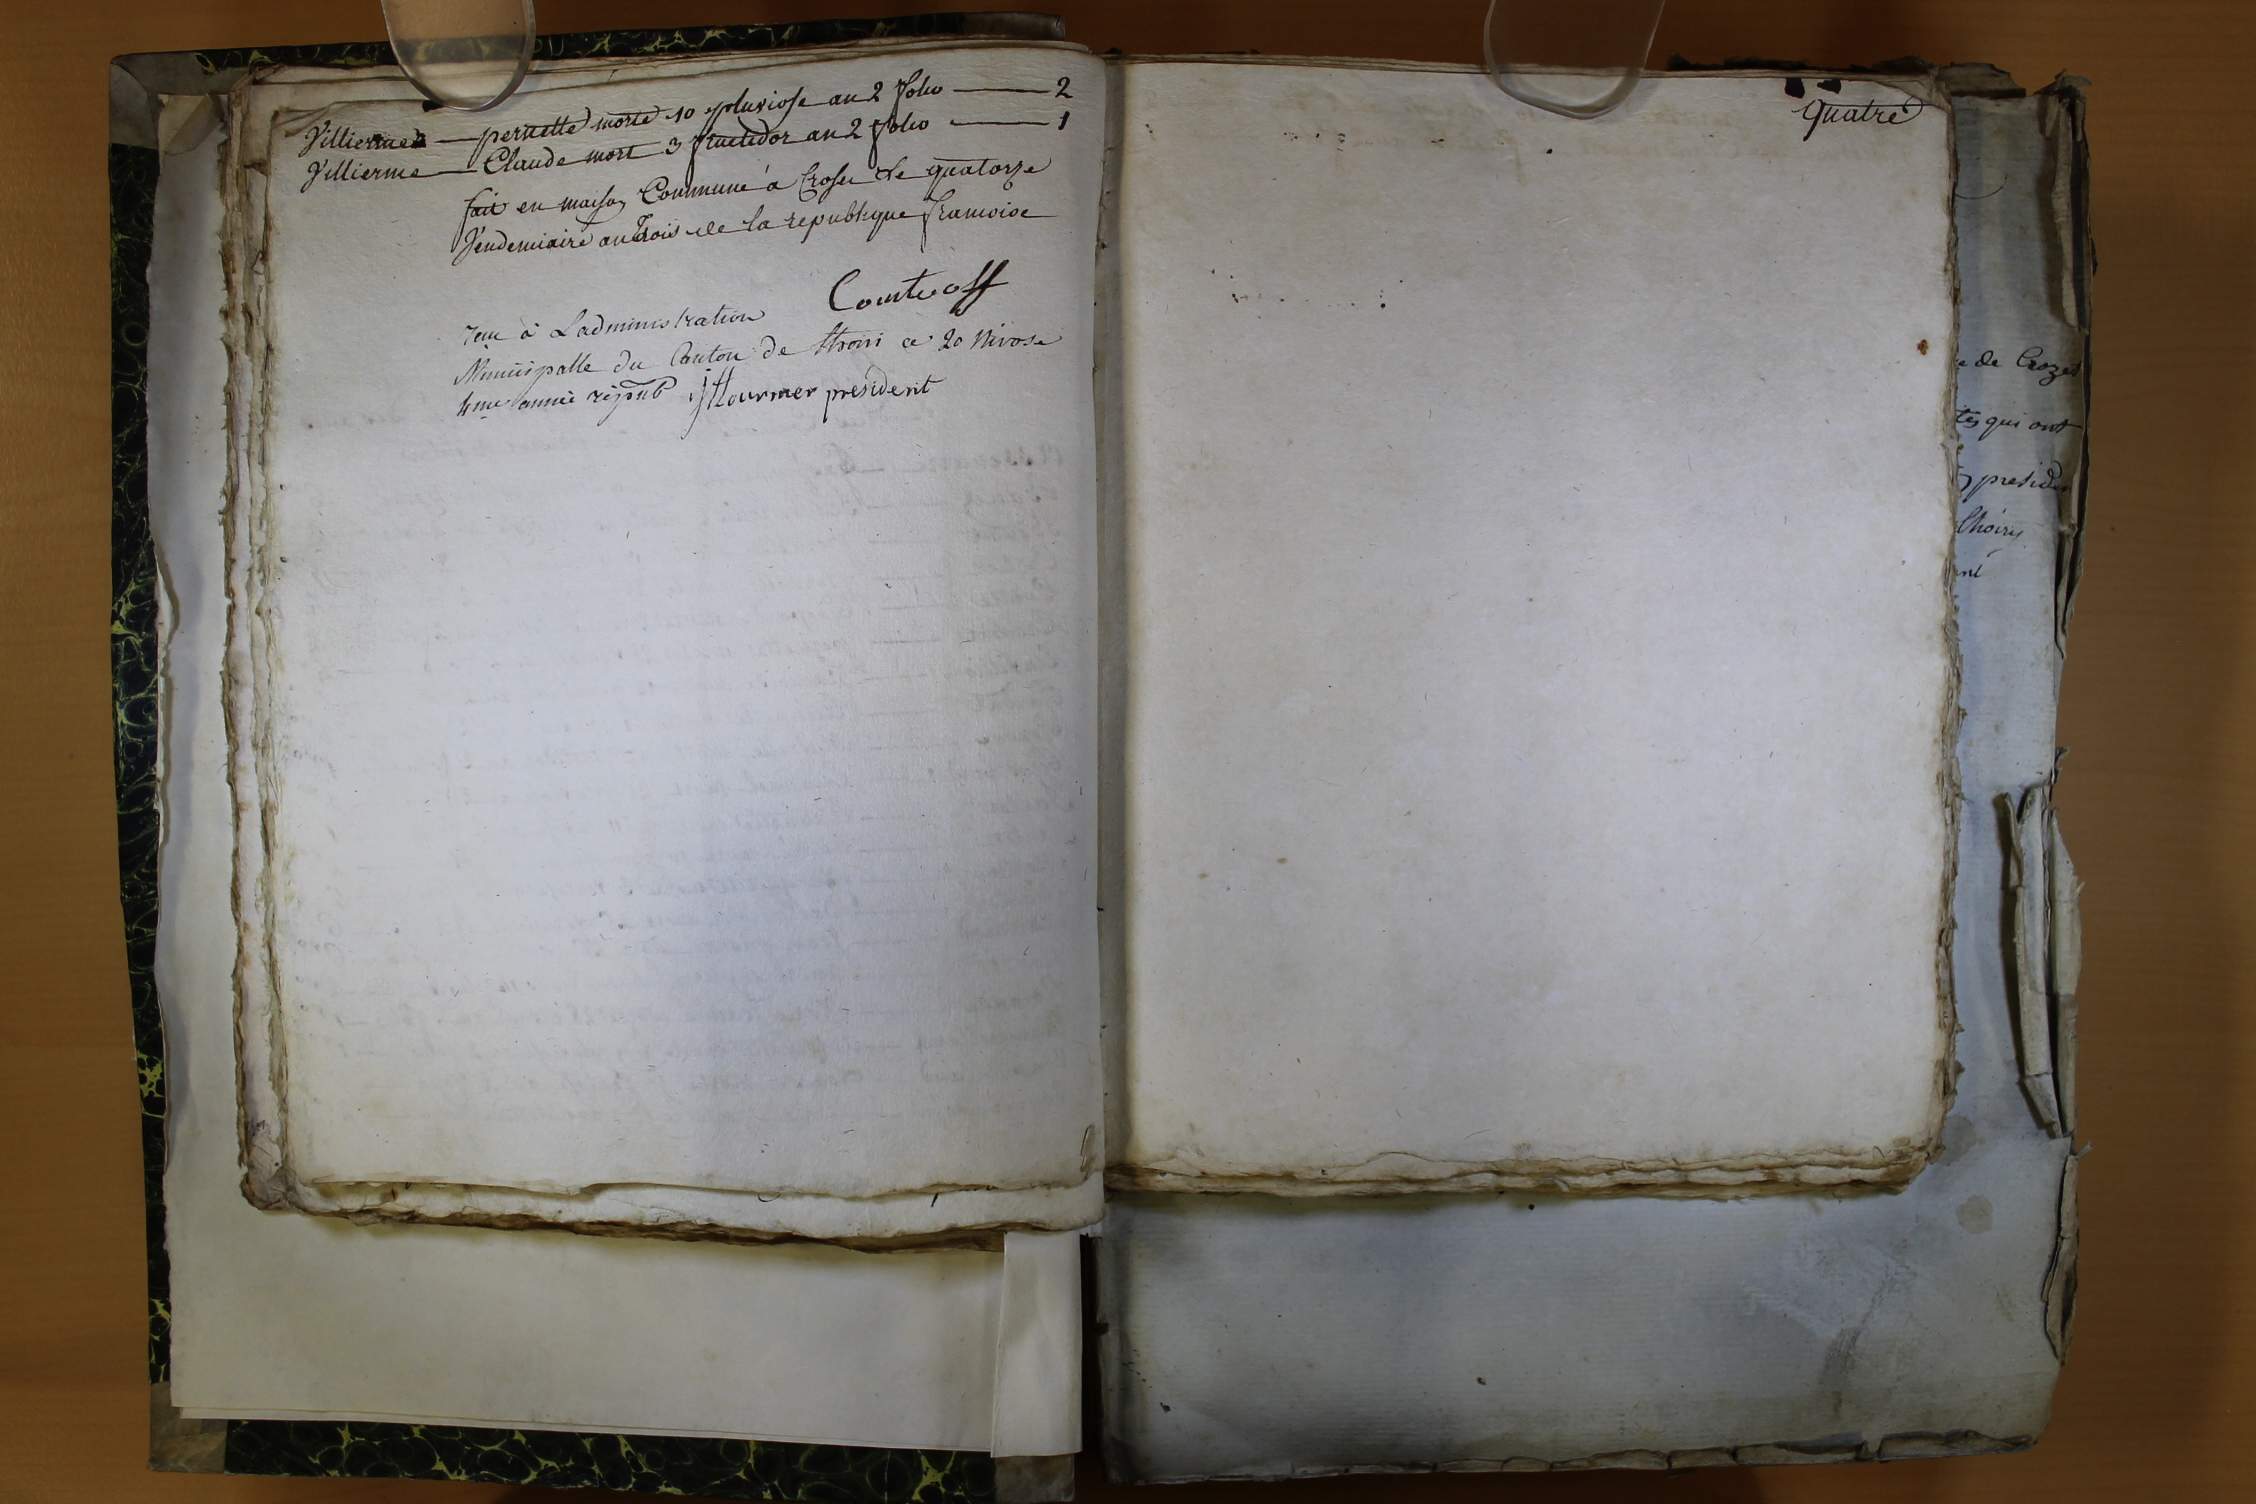 Villierme — pernette morte 10 pluviose an 2 folio — 2
Villierme — Claude mort 3 fructidor an 2 folio — 1
fait en maison Commune a Croset le quatorze
Vendemiaire an trois de la republique francoise
Comte off
veu à Ladministration
Municipalle du Canton de thoiri ce 20 Nivose
4me année repub president
quatre
de Crozet
qui ont
presid
thoiry